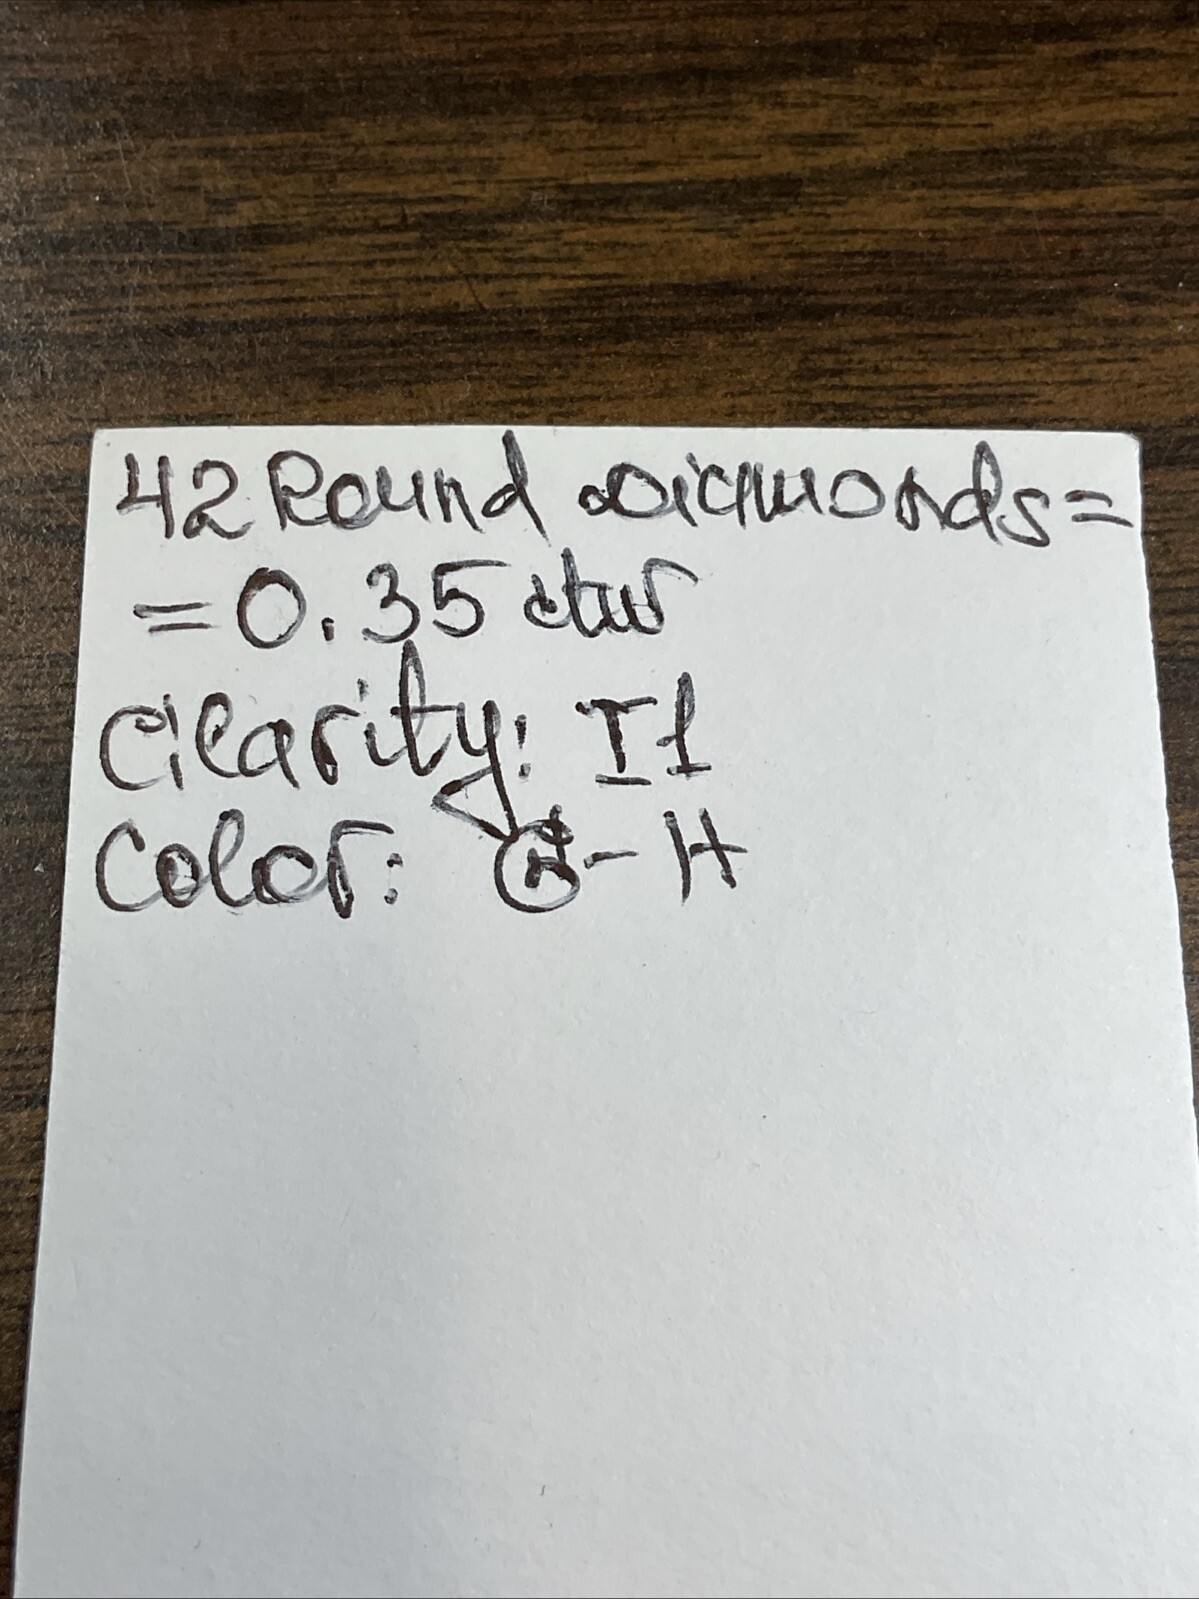 42 Round Diamonds=
=0.35 ctw
Clarity: I1
Color: G-H